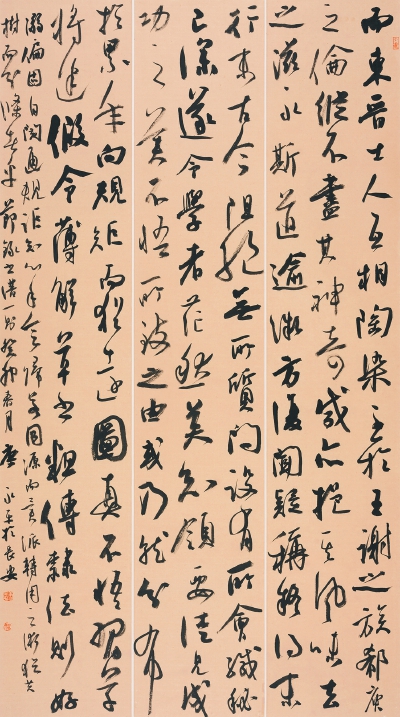 而東晉士人互相陶染至於王謝之族郗庾
之倫縱不盡其神奇咸亦挹其風味去
之滋永斯道逾微方復聞疑稱疑得末
行末古今阻絕無所質問設有所會緘秘
已深遂令學者茫然莫知領要徒見成
功之美不悟所致之由或乃就分布
於累年向規矩而猶遠圖真不悟習草
將迷假令薄解草書粗傳隸法則好
溺偏固自閡通規詎知心手會歸若同源而異派轉用之術猶共
樹而分條者乎節錄書譜一則癸卯春月唐永平於長安